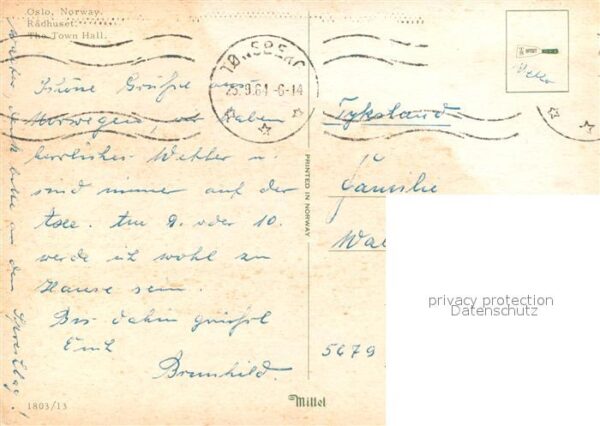 Oslo, Norway.
Rådhuset.
The Town Hall.
TØNSBERG
25.9.64-6-14
Schöne Grüße aus
Norwegen, wir haben
herrliches Wetter u.
sind immer auf der
See. Am 9. oder 10.
werde ich wohl zu
Hause sein.
Bis dahin grüßt
Euch
Brunhild.
denkt bitte an den Sparschlag!
PRINTED IN NORWAY
Tyskland
Familie
Wal
5679
privacy protection
Datenschutz
1803/13
Mittet